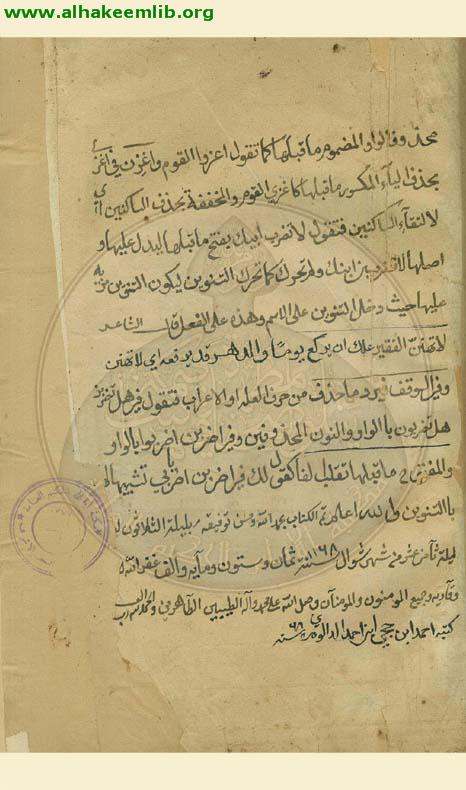 www.alhakeemlib.org
محذوف الواو المضموم ما قبلها كما تقول اغزوا القوم واغزن في اغزي
بحذف الياء المكسور ما قبلها كاغزي القوم والمخففة بحذف الساكنين اي
لالتقاء الساكنين فتقول لا تضرب ابنك بفتح ما قبلها ليدل عليها و
اصلها لا تضربن ابنك ولم تحرك كما تحرك التنوين ليكون التنوين
عليها حيث دخل التنوين على الاسم وهذه على الفعل قال الشاعر
لا تهين الفقير علك ان تركع يوما والدهر قد رفعه اي لا تهينن
وفي الوقف فيرد ما حذف من حرف العلة او الاعراب فتقول في هل تضربن
هل تضربون بالواو والنون المحذوفين وفي اضربن اضربوا بالواو
والمفتوح ما قبلها تقلب الفا كقولك في اضربن اضربا تشبيها لها
بالتنوين والله اعلم تم الكتاب بحمد الله وحسن توفيقه بليلة الثلاثون
ليلة ثامن عشر من شهر شوال ١١٦٨ سنة ثمان وستون ومايه والف غفر الله
وقاريه وجميع المومنون والمومنات وصلى الله على محمد وآله الطيبين الطاهرين والحمد لله رب
كتبه احمد ابن حجي ابن احمد سنة ٦٨